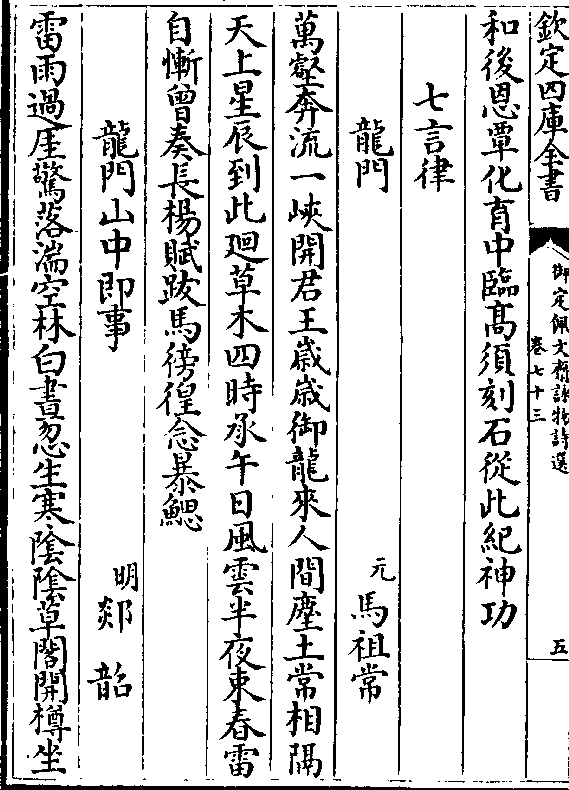 欽定四庫全書
御定佩文齋詠物詩選
卷七十三
五
和後恩覃化育中臨髙須刻石從此紀神功
七言律
龍門
元
馬祖常
萬壑奔流一峽開君王歳歳御龍來人間塵土常相隔
天上星辰到此廻草木四時承午日風雲半夜束春雷
自慚曾奏長楊賦跋馬徬徨念暴鰓
龍門山中即事
明
郯韶
雷雨過厓驚落湍空林白晝忽生寒陰陰草閣開樽坐